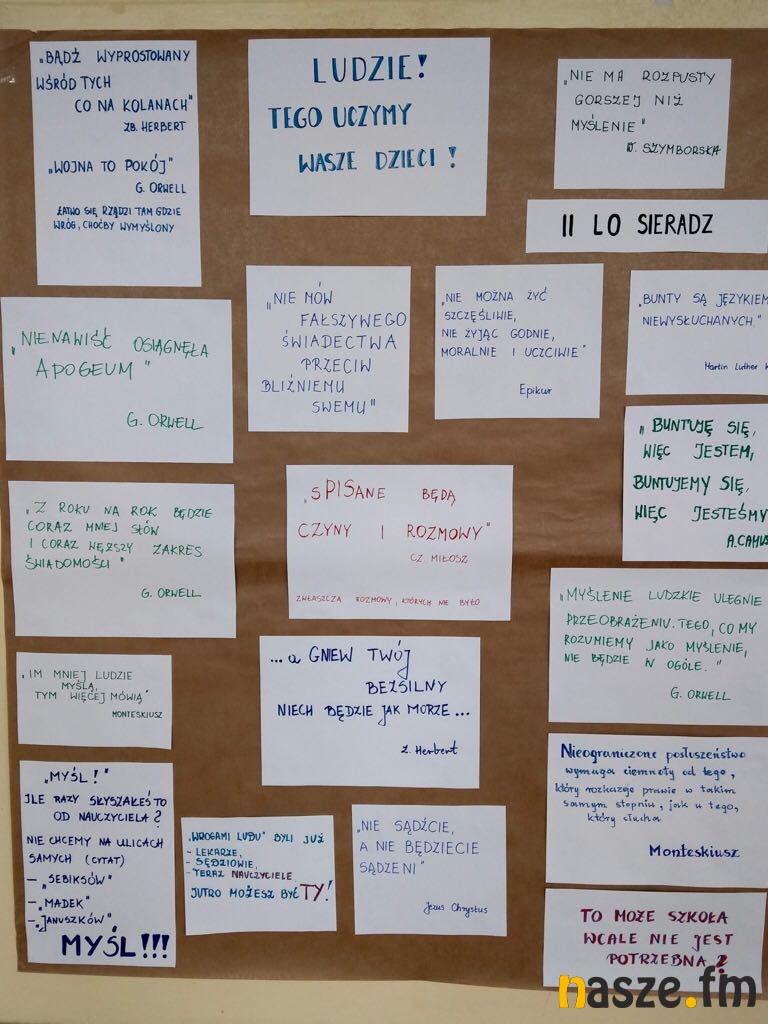 „BĄDŹ WYPROSTOWANY
WŚRÓD TYCH
CO NA KOLANACH"
ZB. HERBERT
„WOJNA TO POKÓJ"
G. ORWELL
ŁATWO SIĘ RZĄDZI TAM GDZIE
WRÓG, CHOĆBY WYMYŚLONY
LUDZIE!
TEGO UCZYMY
WASZE DZIECI!
„NIE MA ROZPUSTY
GORSZEJ NIŻ
MYŚLENIE"
W. SZYMBORSKA
II LO SIERADZ
„NIENAWIŚĆ OSIĄGNĘŁA
APOGEUM"
G. ORWELL
„NIE MÓW
FAŁSZYWEGO
ŚWIADECTWA
PRZECIW
BLIŹNIEMU
SWEMU"
„NIE MOŻNA ŻYĆ
SZCZĘŚLIWIE,
NIE ŻYJĄC GODNIE,
MORALNIE I UCZCIWIE"
Epikur
„BUNTY SĄ JĘZYKIEM
NIEWYSŁUCHANYCH"
Martin Luther K
„BUNTUJĘ SIĘ,
WIĘC JESTEM,
BUNTUJEMY SIĘ,
WIĘC JESTEŚMY
A. CAMUS
„Z ROKU NA ROK BĘDZIE
CORAZ MNIEJ SŁÓW
I CORAZ WĘŻSZY ZAKRES
ŚWIADOMOŚCI"
G. ORWELL
„SPISANE BĘDĄ
CZYNY I ROZMOWY"
CZ. MIŁOSZ
ZWŁASZCZA ROZMOWY, KTÓRYCH NIE BYŁO
„MYŚLENIE LUDZKIE ULEGNIE
PRZEOBRAŻENIU. TEGO, CO MY
ROZUMIEMY JAKO MYŚLENIE,
NIE BĘDZIE W OGÓLE."
G. ORWELL
„IM MNIEJ LUDZIE
MYŚLĄ,
TYM WIĘCEJ MÓWIĄ"
MONTESKIUSZ
...a GNIEW TWÓJ
BEZSILNY
NIECH BĘDZIE JAK MORZE...
Z. Herbert
„MYŚL!"
ILE RAZY SŁYSZAŁEŚ TO
OD NAUCZYCIELA?
NIE CHCEMY NA ULICACH
SAMYCH (CYTAT)
– „SEBIKSÓW"
– „MADEK"
– „JANUSZKÓW"
MYŚL!!!
„WROGAMI LUDU" BYLI JUŻ
- LEKARZE,
- SĘDZIOWIE,
- TERAZ NAUCZYCIELE.
JUTRO MOŻESZ BYĆ TY!
„NIE SĄDŹCIE,
A NIE BĘDZIECIE
SĄDZENI"
Jezus Chrystus
Nieograniczone posłuszeństwo
wymaga ciemnoty od tego,
który rozkazuje prawie w takim
samym stopniu, jak u tego,
który słucha
Monteskiusz
TO MOŻE SZKOŁA
WCALE NIE JEST
POTRZEBNA?
nasze.fm